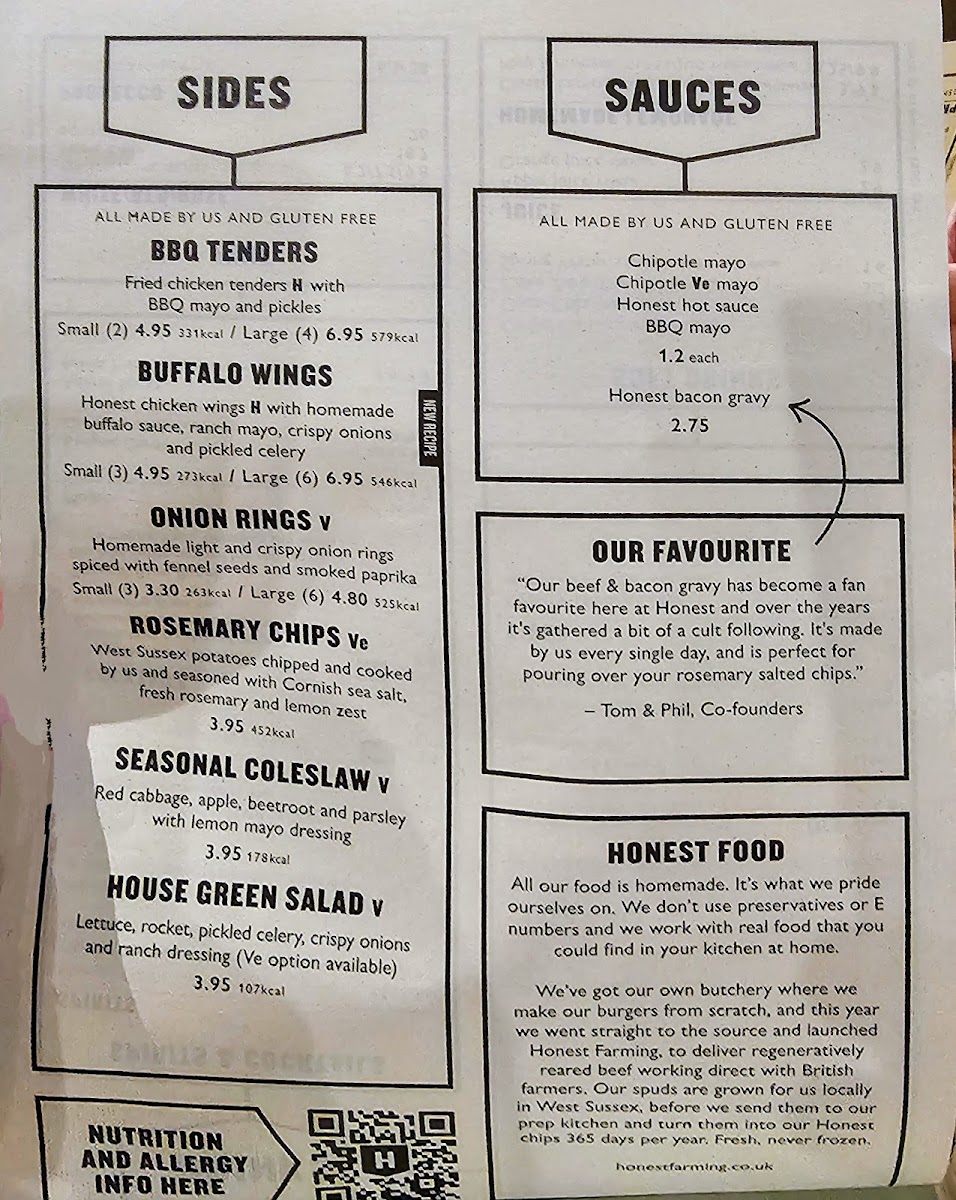 SIDES
ALL MADE BY US AND GLUTEN FREE
BBQ TENDERS
Fried chicken tenders H with
BBQ mayo and pickles
Small (2) 4.95 331kcal / Large (4) 6.95 579kcal
BUFFALO WINGS
Honest chicken wings H with homemade
buffalo sauce, ranch mayo, crispy onions
and pickled celery
Small (3) 4.95 273kcal / Large (6) 6.95 546kcal
NEW RECIPE
ONION RINGS V
Homemade light and crispy onion rings
spiced with fennel seeds and smoked paprika
Small (3) 3.30 263kcal / Large (6) 4.80 525kcal
ROSEMARY CHIPS Ve
West Sussex potatoes chipped and cooked
by us and seasoned with Cornish sea salt,
fresh rosemary and lemon zest
3.95 452kcal
SEASONAL COLESLAW V
Red cabbage, apple, beetroot and parsley
with lemon mayo dressing
3.95 178kcal
HOUSE GREEN SALAD V
Lettuce, rocket, pickled celery, crispy onions
and ranch dressing (Ve option available)
3.95 107kcal
NUTRITION
AND ALLERGY
INFO HERE
H
SAUCES
ALL MADE BY US AND GLUTEN FREE
Chipotle mayo
Chipotle Ve mayo
Honest hot sauce
BBQ mayo
1.2 each
Honest bacon gravy
2.75
OUR FAVOURITE
“Our beef & bacon gravy has become a fan
favourite here at Honest and over the years
it's gathered a bit of a cult following. It's made
by us every single day, and is perfect for
pouring over your rosemary salted chips.”
– Tom & Phil, Co-founders
HONEST FOOD
All our food is homemade. It's what we pride
ourselves on. We don't use preservatives or E
numbers and we work with real food that you
could find in your kitchen at home.
We've got our own butchery where we
make our burgers from scratch, and this year
we went straight to the source and launched
Honest Farming, to deliver regeneratively
reared beef working direct with British
farmers. Our spuds are grown for us locally
in West Sussex, before we send them to our
prep kitchen and turn them into our Honest
chips 365 days per year. Fresh, never frozen.
honestfarming.co.uk